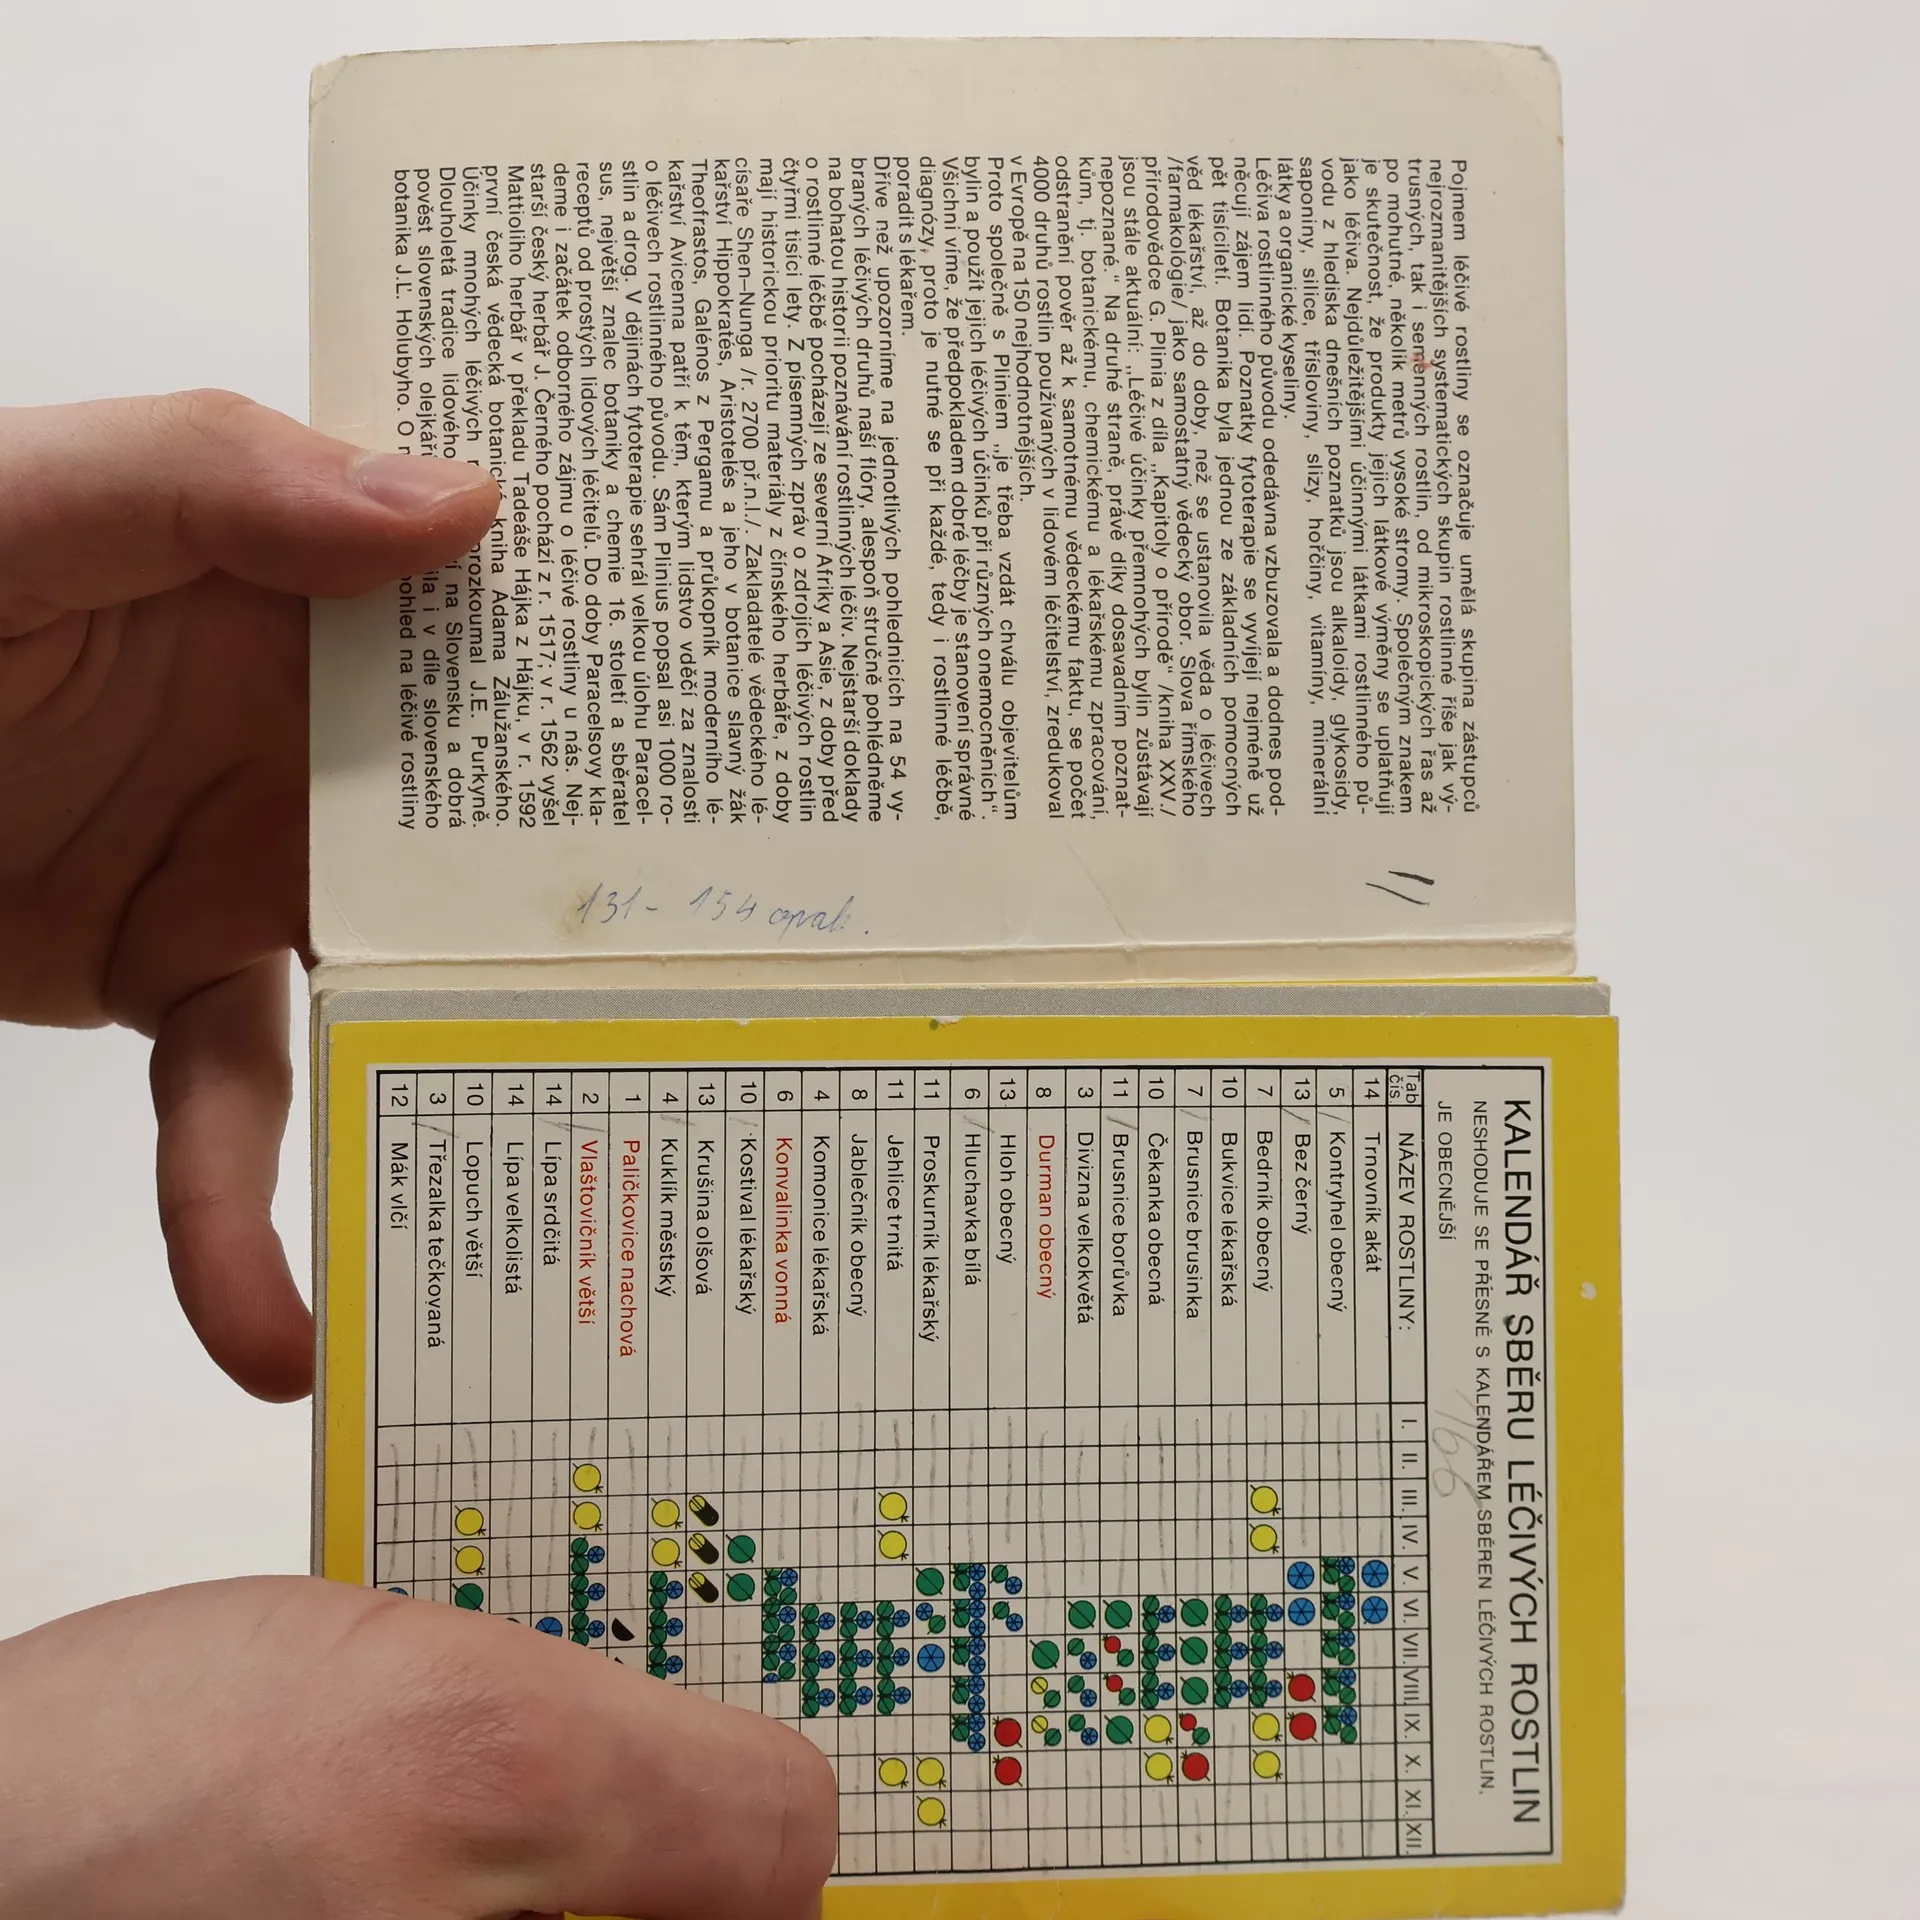 Pojmem léčivé rostliny se označuje umělá skupina zástupců
nejrozmanitějších systematických skupin rostlinné říše jak vý-
trusných, tak i semenných rostlin, od mikroskopických řas až
po mohutné, několik metrů vysoké stromy. Společným znakem
je skutečnost, že produkty jejich látkové výměny se uplatňují
jako léčiva. Nejdůležitějšími účinnými látkami rostlinného pů-
vodu z hlediska dnešních poznatků jsou alkaloidy, glykosidy,
saponiny, silice, třísloviny, slizy, hořčiny, vitamíny, minerální
látky a organické kyseliny.
Léčiva rostlinného původu odedávna vzbuzovala a dodnes pod-
něcují zájem lidí. Poznatky fytoterapie se vyvíjejí nejméně už
pět tisíciletí. Botanika byla jednou ze základních pomocných
věd lékařství, až do doby, než se ustanovila věda o léčivech
/farmakológie/ jako samostatný vědecký obor. Slova římského
přírodovědce G. Plinia z díla „Kapitoly o přírodě“ /kniha XXV./
jsou stále aktuální: „Léčivé účinky přemnohých bylin zůstávají
nepoznané.“ Na druhé straně, právě díky dosavadním poznat-
kům, tj. botanickému, chemickému a lékařskému zpracování,
odstranění pověr až k samotnému vědeckému faktu, se počet
4000 druhů rostlin používaných v lidovém léčitelství, zredukoval
v Evropě na 150 nejhodnotnějších.
Proto společně s Pliniem „je třeba vzdát chválu objevitelům
bylin a použít jejich léčivých účinků při různých onemocněních“.
Všichni víme, že předpokladem dobré léčby je stanovení správné
diagnózy, proto je nutné se při každé, tedy i rostlinné léčbě,
poradit s lékařem.
Dříve než upozorníme na jednotlivých pohlednicích na 54 vy-
braných léčivých druhů naší flóry, alespoň stručně pohlédněme
na bohatou historii poznávání rostlinných léčiv. Nejstarší doklady
o rostlinné léčbě pocházejí ze severní Afriky a Asie, z doby před
čtyřmi tisíci lety. Z písemných zpráv o zdrojích léčivých rostlin
mají historickou prioritu materiály z čínského herbáře, z doby
císaře Shen–Nunga /r. 2700 př.n.l./. Zakladatelé vědeckého lé-
kařství Hippokratés, Aristotelés a jeho v botanice slavný žák
Theofrastos, Galénos z Pergamu a průkopník moderního lé-
kařství Avicenna patří k těm, kterým lidstvo vděčí za znalosti
o léčivech rostlinného původu. Sám Plinius popsal asi 1000 ro-
stlin a drog. V dějinách fytoterapie sehrál velkou úlohu Paracel-
sus, největší znalec botaniky a chemie 16. století a sběratel
receptů od prostých lidových léčitelů. Do doby Paracelsovy kla-
deme i začátek odborného zájmu o léčivé rostliny u nás. Nej-
starší český herbář J. Černého pochází z r. 1517; v r. 1562 vyšel
Mattioliho herbář v překladu Tadeáše Hájka z Hájku, v r. 1592
první česká vědecká botanická kniha Adama Zálužanského.
Účinky mnohých léčivých prozkoumal J.E. Purkyně.
Dlouholetá tradice lidového na Slovensku a dobrá
pověst slovenských olejkářů i v díle slovenského
botanika J.Ľ. Holubyho. O pohled na léčivé rostliny
1/
131 - 154 opak.
KALENDÁŘ SBĚRU LÉČIVÝCH ROSTLIN
NESHODUJE SE PŘESNĚ S KALENDÁŘEM SBĚREN LÉČIVÝCH ROSTLIN,
JE OBECNĚJŠÍ
166
Tab čís. NÁZEV ROSTLINY: I. II. III. IV. V. VI. VII. VIII. IX. X. XI. XII.
14 Trnovník akát
5 Kontryhel obecný
13 Bez černý
7 Bedrník obecný
10 Bukvice lékařská
7 Brusnice brusinka
10 Čekanka obecná
11 Brusnice borůvka
3 Divizna velkokvětá
8 Durman obecný
13 Hloh obecný
6 Hluchavka bílá
11 Proskurník lékařský
11 Jehlice trnitá
8 Jablečník obecný
4 Komonice lékařská
6 Konvalinka vonná
10 Kostival lékařský
13 Krušina olšová
4 Kuklík městský
1 Paličkovice nachová
2 Vlaštovičník větší
14 Lípa srdčitá
14 Lípa velkolistá
10 Lopuch větší
3 Třezalka tečkovaná
12 Mák vlčí